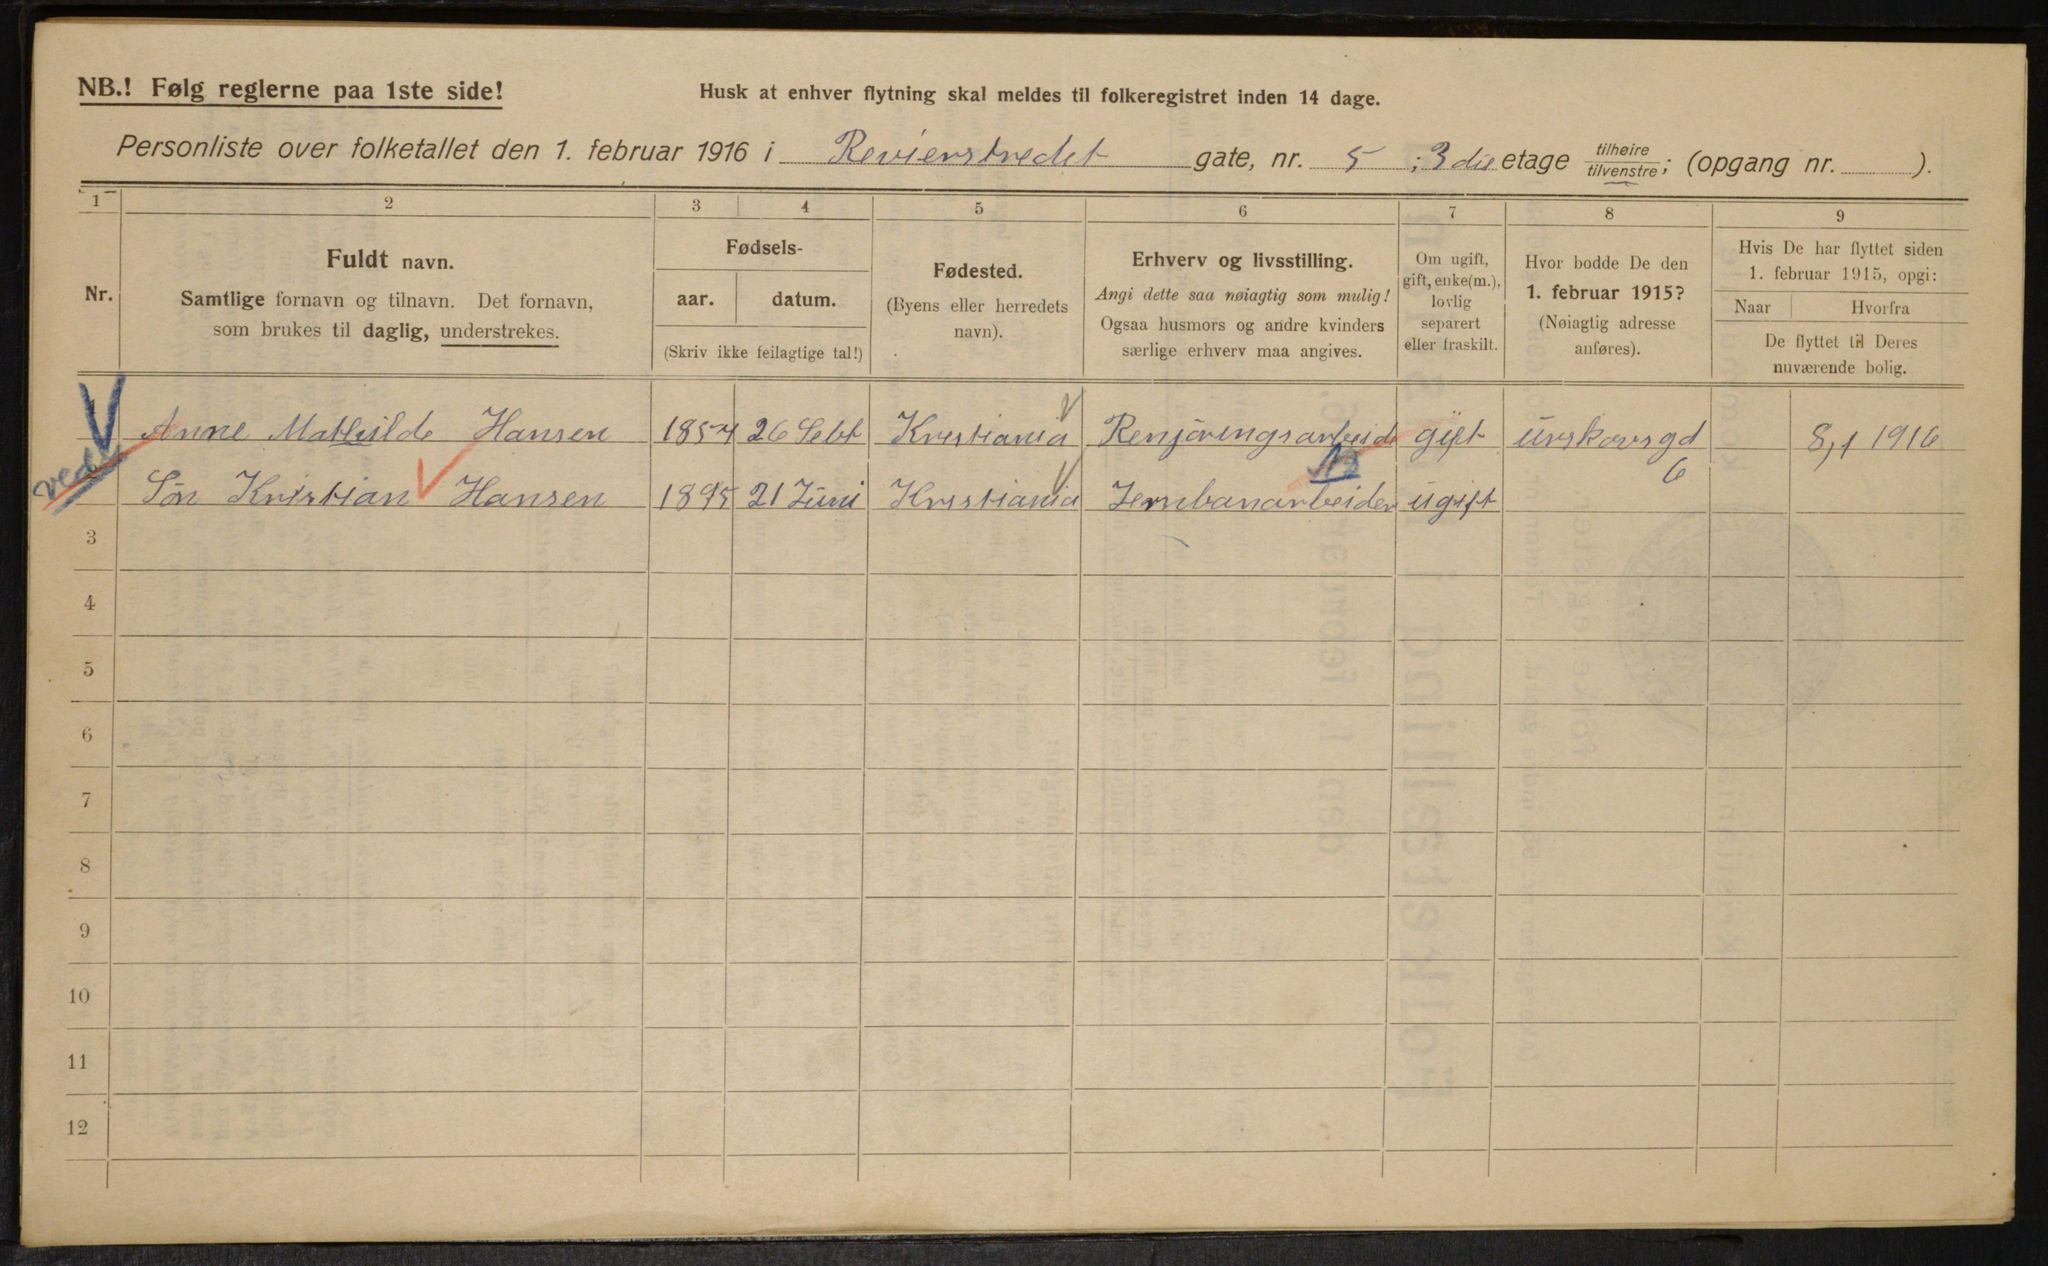 NB.! Følg reglerne paa 1ste side!
Husk at enhver flytning skal meldes til folkeregistret inden 14 dage.
Personliste over folketallet den 1. februar 1916 i Revierstredet gate, nr. 5 ; 3die etage tilhøire/tilvenstre; (opgang nr. ).
1 2 3 4 5 6 7 8 9
Nr.
Fuldt navn.
Samtlige fornavn og tilnavn. Det fornavn,
som brukes til daglig, understrekes.
Fødsels-
aar. datum.
(Skriv ikke feilagtige tal!)
Fødested.
(Byens eller herredets
navn).
Erhverv og livsstilling.
Angi dette saa nøiagtig som mulig!
Ogsaa husmors og andre kvinders
særlige erhverv maa angives.
Om ugift,
gift, enke(m.),
lovlig
separert
eller fraskilt.
Hvor bodde De den
1. februar 1915?
(Nøiagtig adresse
anføres).
Hvis De har flyttet siden
1. februar 1915, opgi:
Naar Hvorfra
De flyttet til Deres
nuværende bolig.
Anne Mathilde Hansen 1857 26 Sebt Kristiania Renjøringsarbeide gift Urskovsgd 6 8/1 1916
Søn Kristian Hansen 1895 21 Juni Kristiania Jernbanarbeider ugift
3
4
5
6
7
8
9
10
11
12